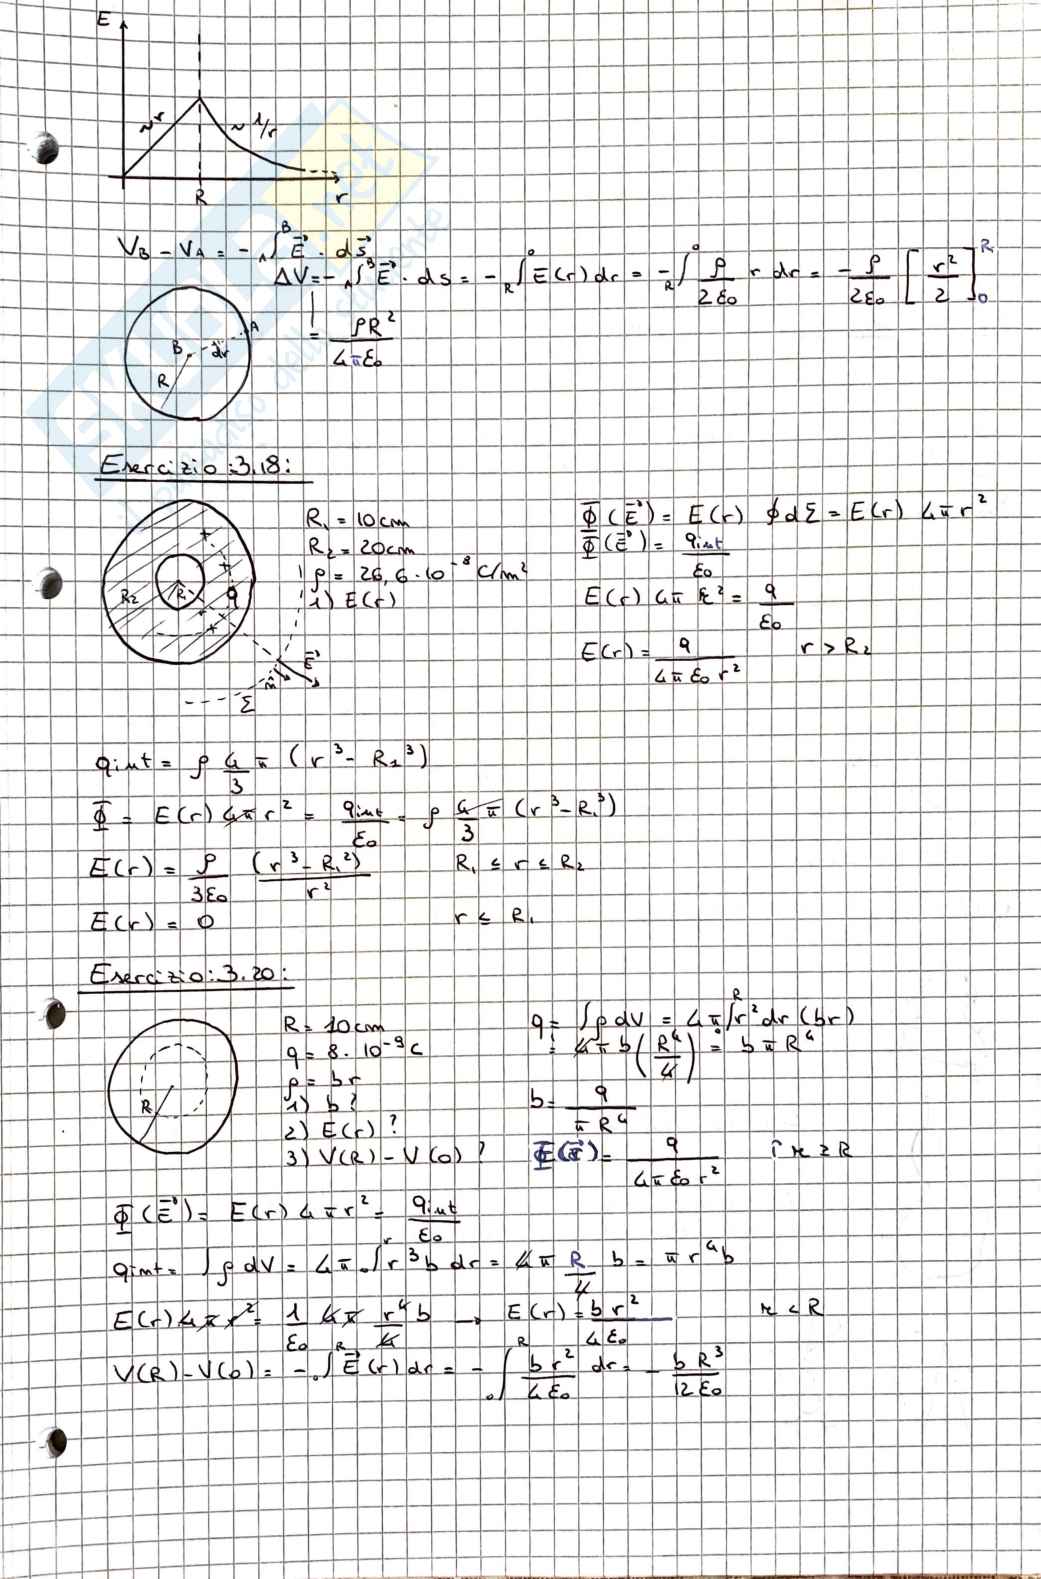 E
~r
~1/r
R
r
V_B - V_A = - _A∫^B E⃗ · ds⃗
ΔV = - _A∫^B E⃗ · ds = - _R∫^0 E(r) dr = - _R∫^0 ρ/2ε₀ r dr = - ρ/2ε₀ [r²/2]_0^R
= ρR²/4πε₀
A
B
dr
R
Esercizio: 3.18:
R₁ = 10 cm
R₂ = 20 cm
ρ = 26,6 · 10⁻⁸ C/m²
1) E(r)
R₂
R₁
q
E⃗
n⃗
Σ
Φ(E⃗) = E(r) ∮dΣ = E(r) 4πr²
Φ(E⃗) = qint/ε₀
E(r) 4π r² = q/ε₀
E(r) = q/4πε₀r² r > R₂
qint = ρ 4/3 π (r³ - R₁³)
Φ = E(r) 4π r² = qint/ε₀ = ρ 4/3 π (r³ - R₁³)
E(r) = ρ/3ε₀ (r³ - R₁²)/r² R₁ ≤ r ≤ R₂
E(r) = 0 r ≤ R₁
Esercizio: 3.20:
R
R = 10 cm
q = 8 · 10⁻⁹ C
ρ = br
1) b?
2) E(r)?
3) V(R) - V(0)?
q = ∫ρ dV = 4π ₀∫^R r² dr (br)
= 4π b (R⁴/4) = b π R⁴
b = q/πR⁴
= q/4πε₀r² r ≥ R
Φ(E⃗) = E(r) 4πr² = qint/ε₀
qint = ∫ρ dV = 4π ₀∫^r r³ b dr = 4π R/4 b = π r⁴ b
E(r) 4π r² = 1/ε₀ 4π r⁴/4 b → E(r) = br²/4ε₀ r < R
V(R) - V(0) = - ₀∫^R E⃗(r) dr = - ₀∫^R br²/4ε₀ dr = - bR³/12ε₀